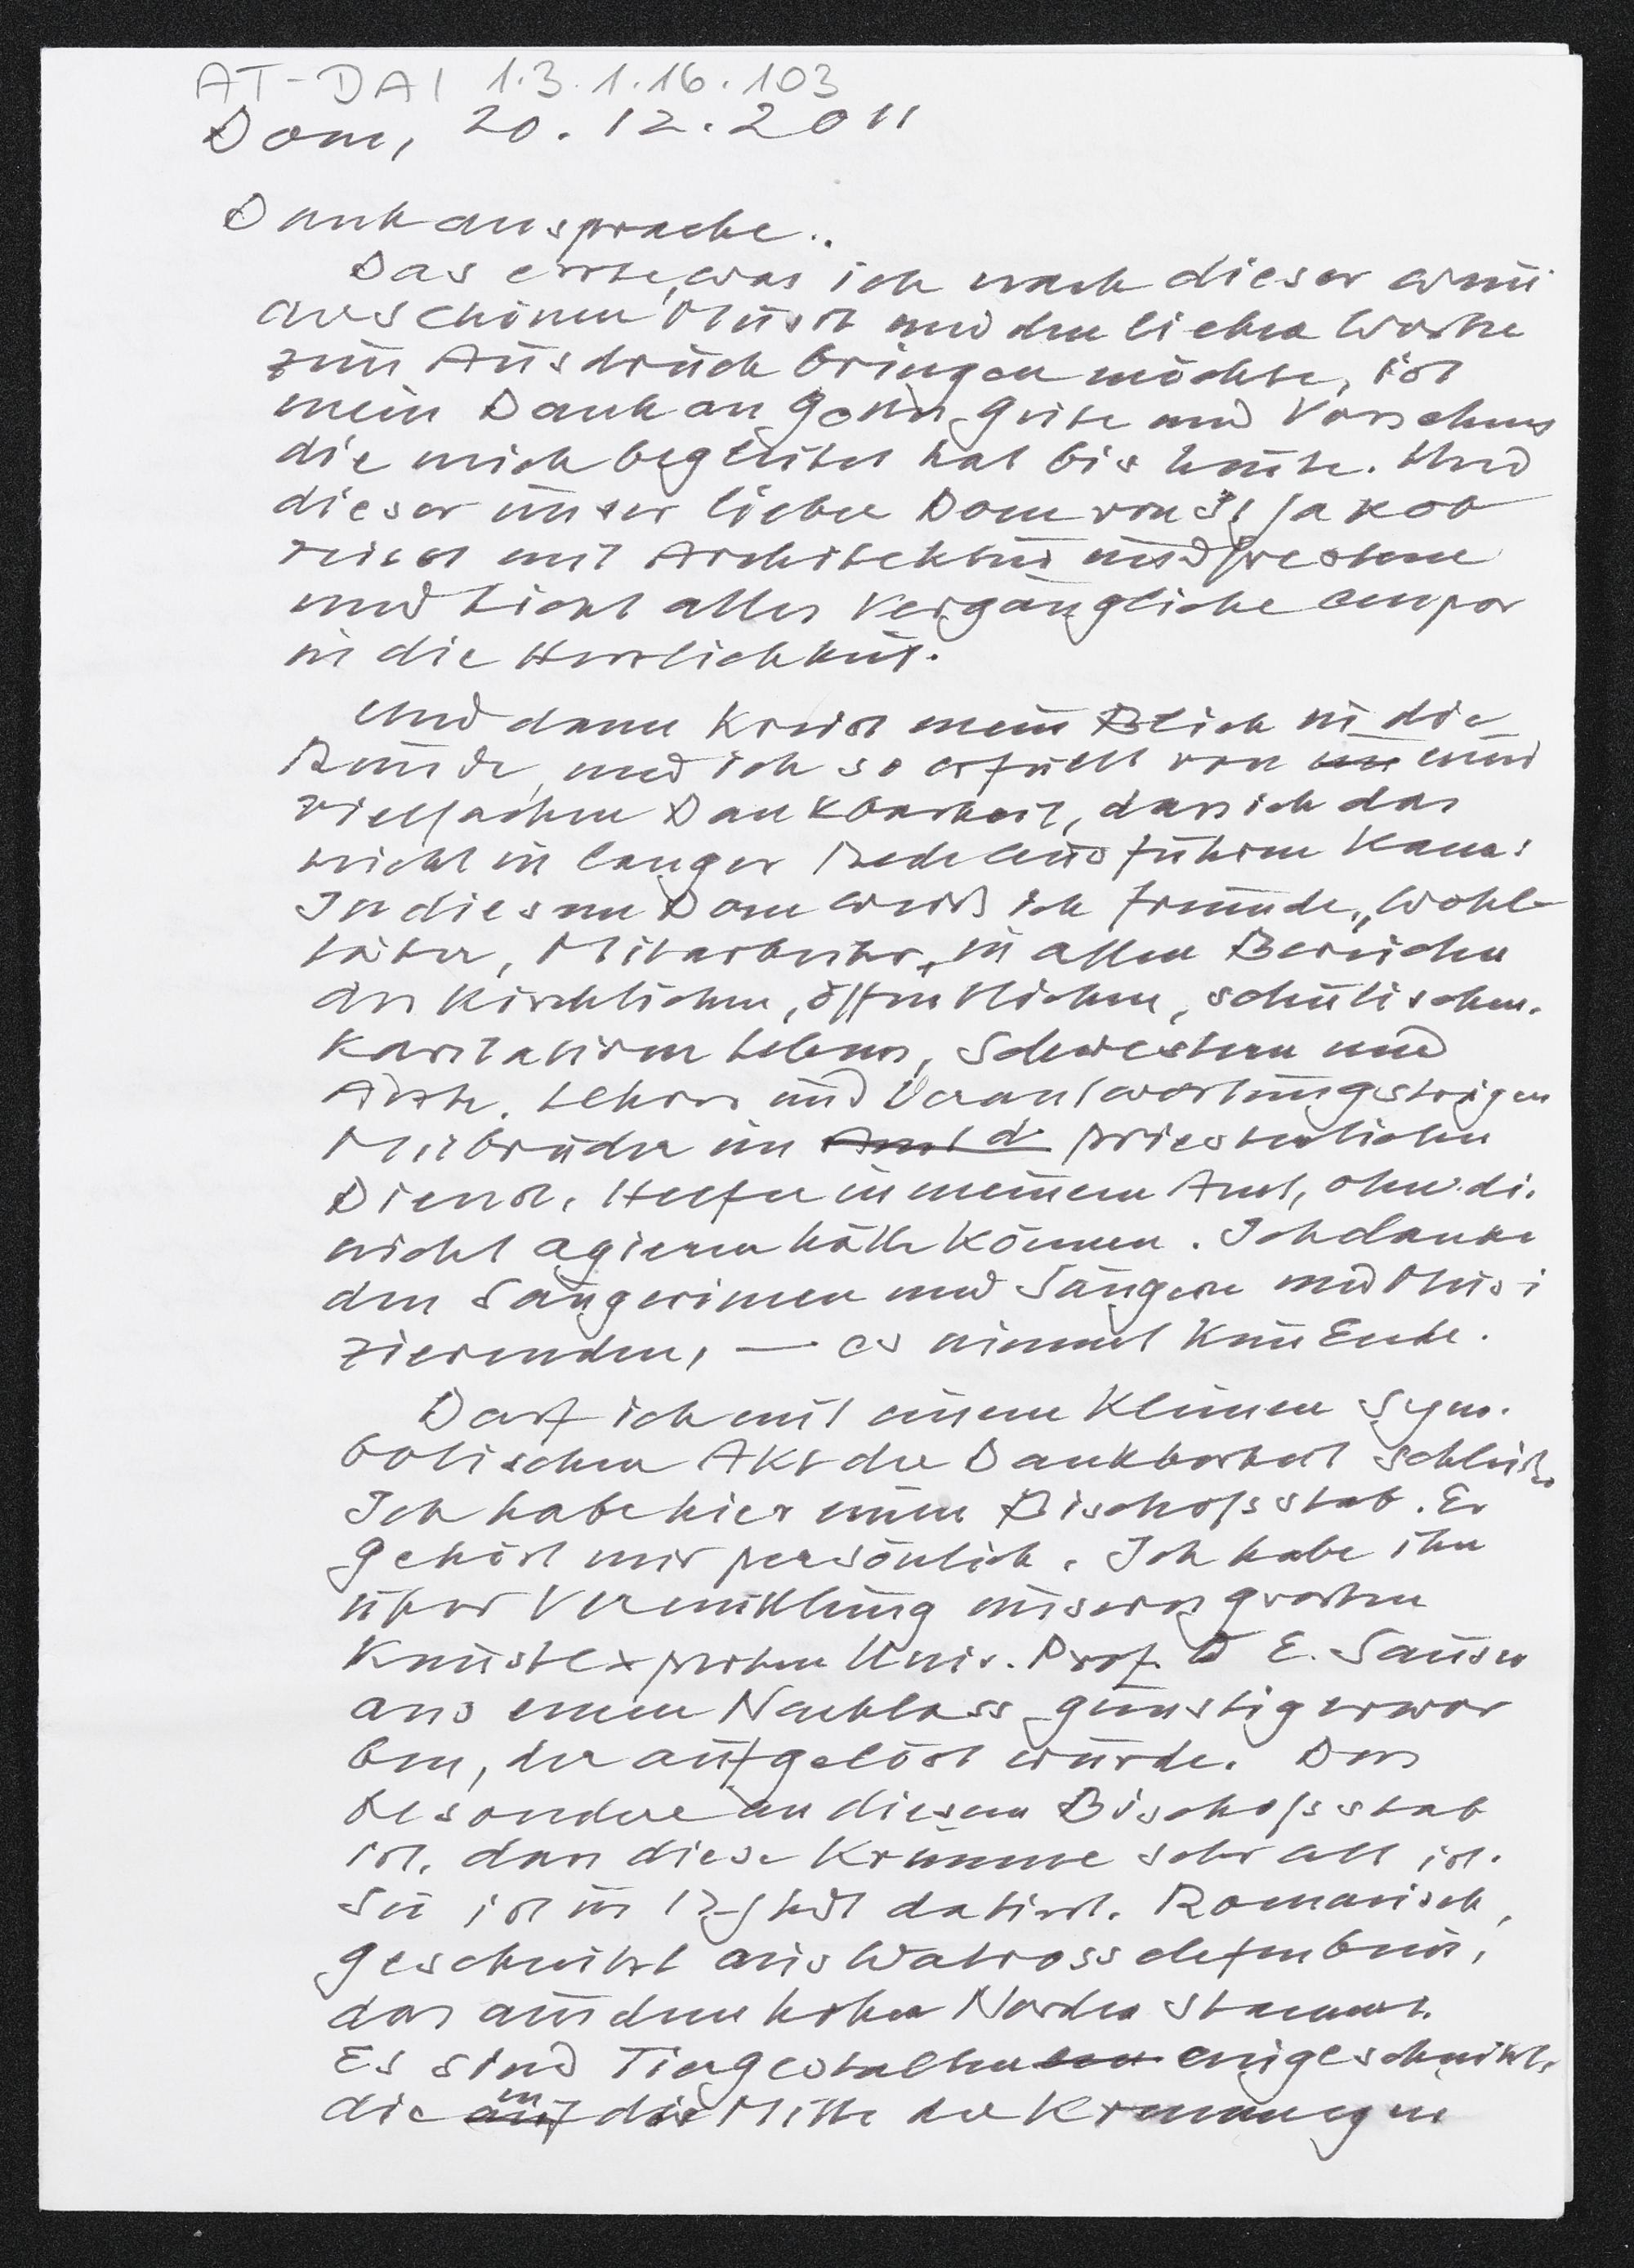 AT-DAI 1.3.1.16.103
Dom, 20.12.2011
Dankansprache..
Das erste, was ich nach dieser wun
derschönen Musik und den lieben Worten
zum Ausdruck bringen möchte, ist
mein Dank an Gottes Güte und Vorsehung
die mich begleitet hat bis heute. Und
dieser unser lieber Dom von St Jakob
reisst mit Architektur und Fresken
und Licht alles Vergängliche empor
in die Herrlichkeit.
Und dann kreist mein Blick in die
Runde, und ich so erfüllt von einer
vielfachen Dankbarkeit, dass ich das
nicht in langer Rede ausführen kann:
In diesem Dom weiß ich Freunde, Wohl-
täter, Mitarbeiter, in allen Bereichen
des kirchlichen, öffentlichen, schulischen.
karitativen Lebens, Schwestern und
Ärzte. Lehrer und Verantwortungsträger
Mitbrüder im Amt d priesterlichen
Dienst, Helfer in meinem Amt, ohne die
nicht agieren hätte können. Ich danke
den Sängerinnen und Sängern und Musi
zierenden, — es nimmt kein Ende.
Darf ich mit einem kleinen Sym-
bolischen Akt der Dankbarkeit schließen
Ich habe hier einen Bischofsstab. Er
gehört mir persönlich. Ich habe ihn
über Vermittlung unseres großen
Kunstexperten Univ. Prof. D E. Sauser
aus einem Nachlass günstig erwor
ben, der aufgelöst wurde. Das
besondere an diesem Bischofsstab
ist, dass diese Krümme sehr alt ist.
Sie ist im 12. Jhdt datiert. Romanisch,
geschnitzt aus Walrosselfenbein,
das aus dem hohen Norden stammt.
Es sind Tiergestalten eingeschnitzt,
die auf in die Mitte der Krümmungen